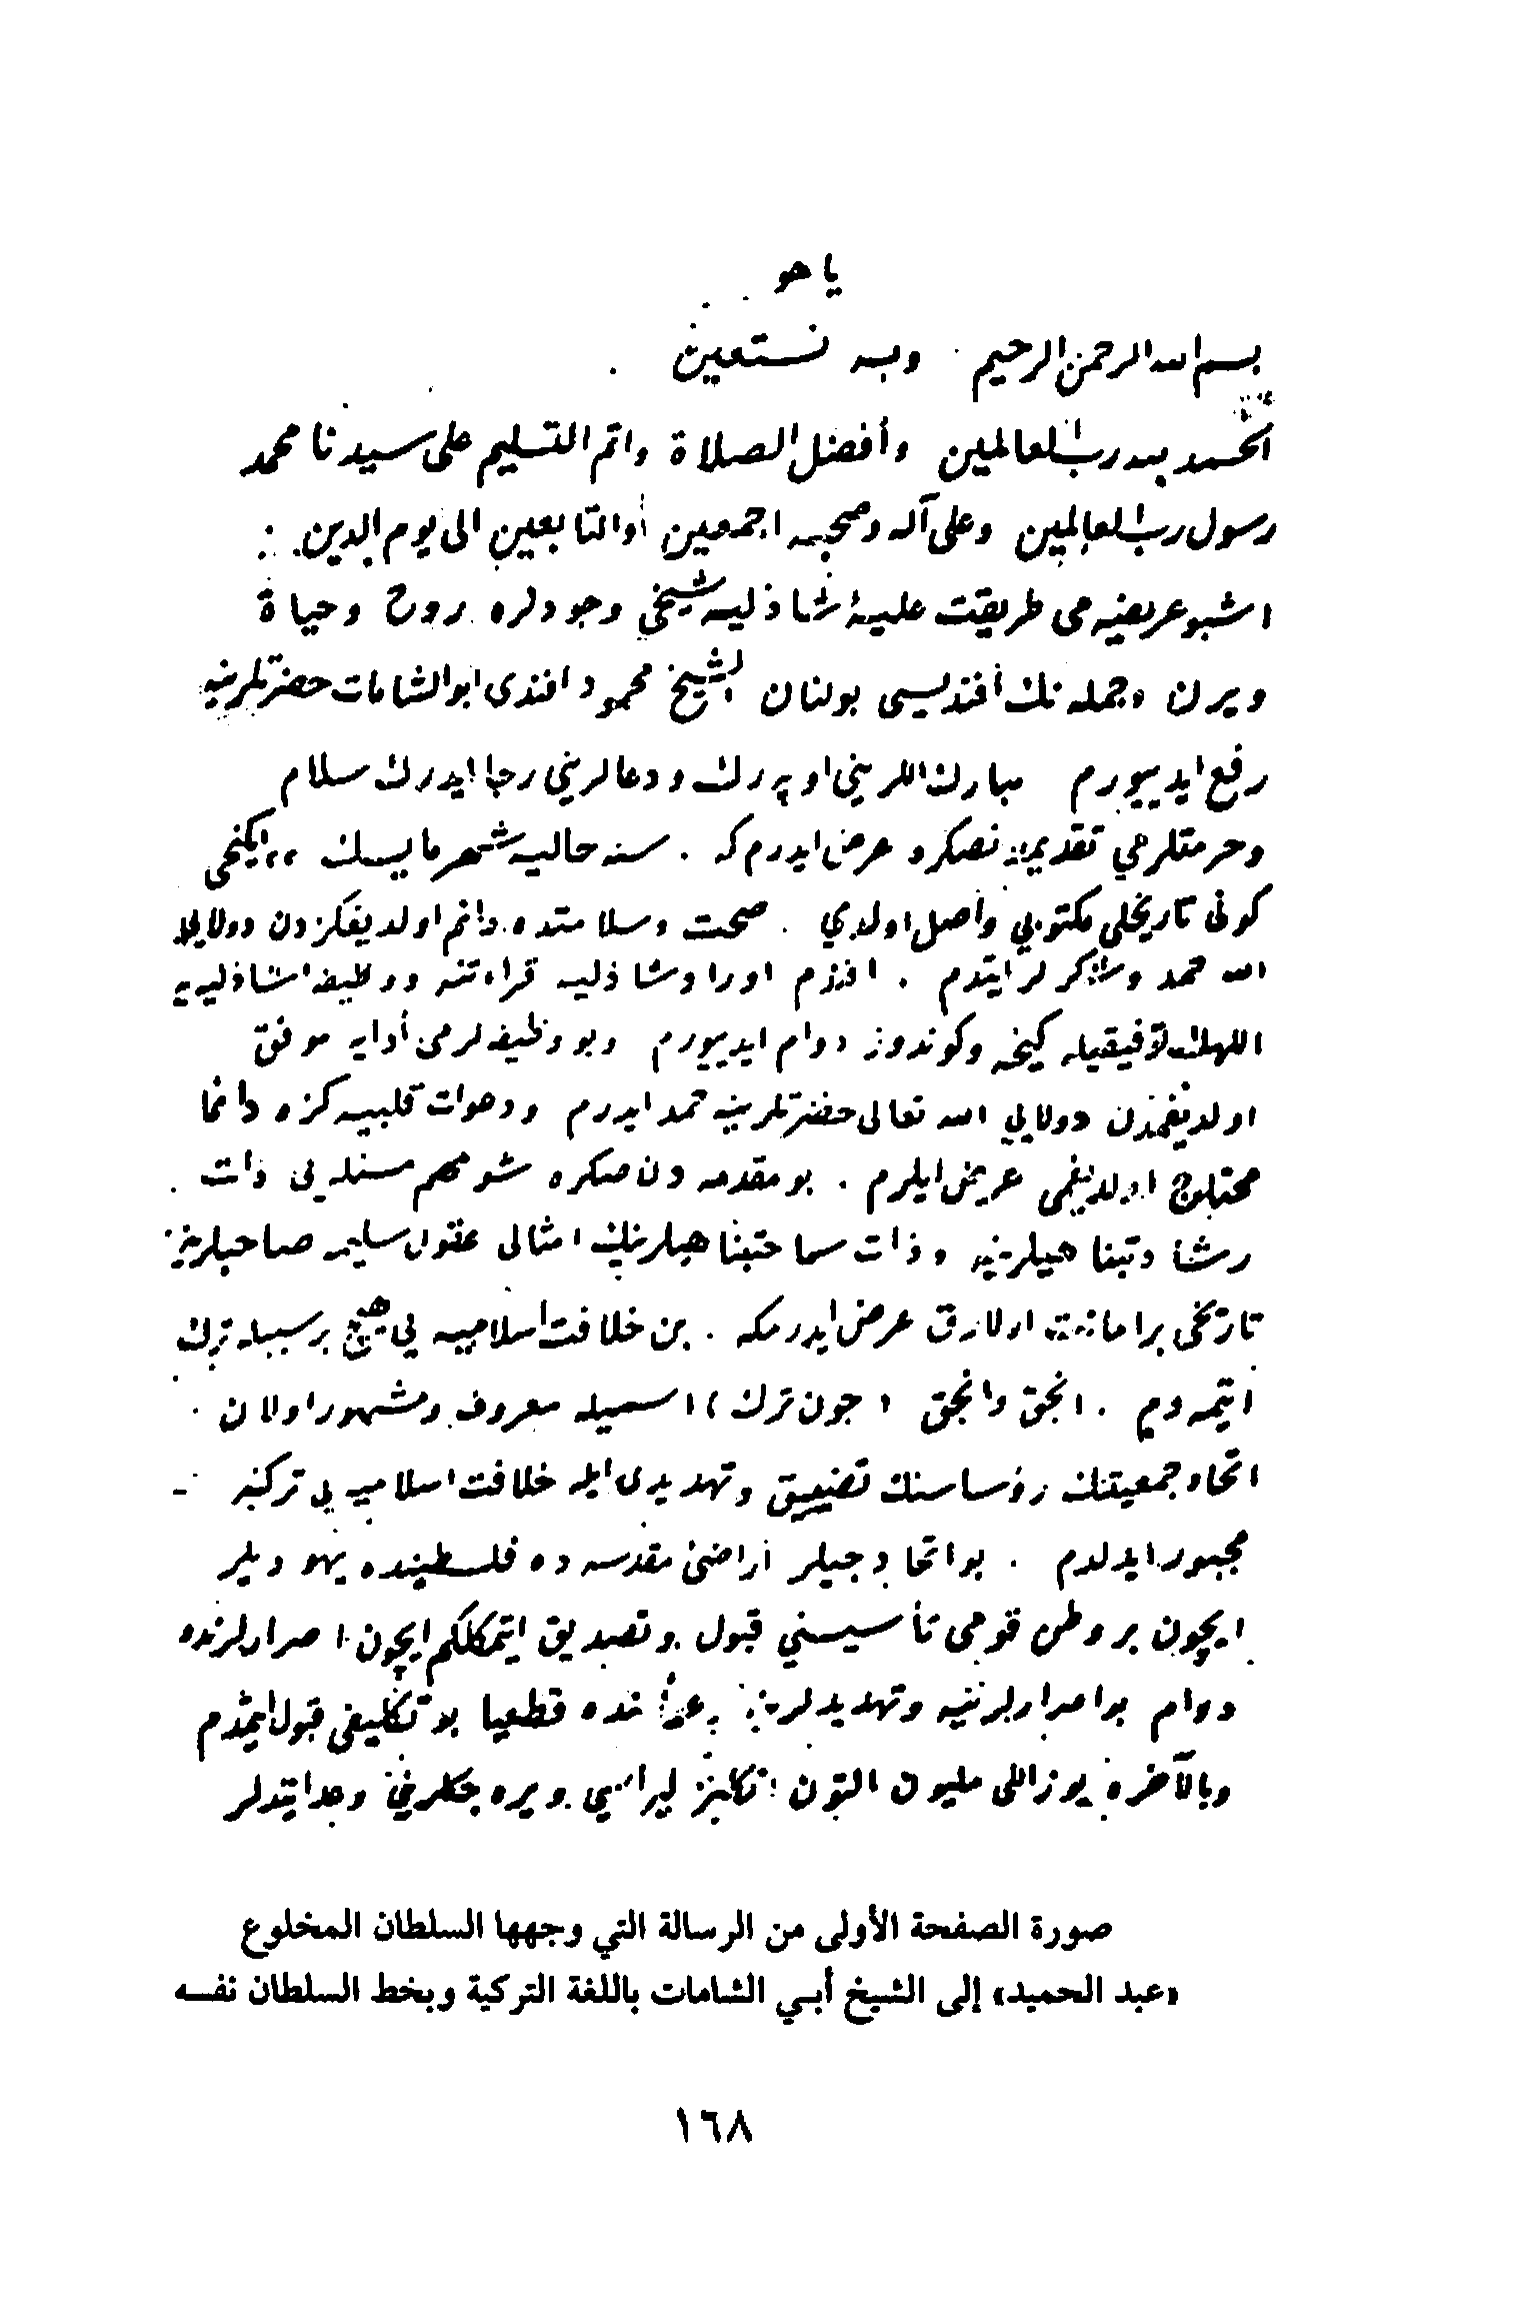 يا هو
بسم الله الرحمن الرحيم وبه نستعين
الحمد لله رب العالمين وأفضل الصلاة واتم التسليم على سيدنا محمد
رسول رب العالمين وعلى آله وصحبه اجمعين والتابعين الى يوم الدين
اشبو عريضه مى طريقت عليۀ شاذليه شيخى وجودلره روح وحياة
ويرن وجمله نك افنديسى بولنان الشيخ محمود افندى ابو الشامات حضرتلرينه
رفع ايدييورم مبارك اللرينى اوپه رك ودعالرينى رجا ايدرك سلام
وحرمتلرمي تقديمدنصكره عرض ايدرم كه . سنه حاليه شهر مايسك ايكنجى
كونى تاريخلى مكتوبي واصل اولدي . صحت وسلامتده دائم اولديغكزدن دولايى
الله حمد وشكرلر ايتدم . افندم اوراد شاذليه قرائتنه ووظيفۀ شاذليه يه
اللهك توفيقيله كيجه وكوندوز دوام ايدييورم وبو وظيفه لرمى أدايه موفق
اولديغمدن دولايي الله تعالى حضرتلرينه حمد ايدرم ودعوات قلبيه كزه دائما
محتاج اولديغمى عرض ايلرم . بو مقدمه دن صكره شو مهم مسئله يى ذات
رشادتپناهيلرينه وذات سماحتپناهيلرينك امثالى عقول سليمه صاحبلرينه
تاريخى بر امانت اولارق عرض ايدرمكه . بن خلافت اسلاميه يى هيچ بر سببله ترك
ايتمه دم . انجق وانجق (جون ترك) اسميله معروف ومشهور اولان
اتحاد جمعيتنك رؤساسنك تضييق وتهديدى ايله خلافت اسلاميه يى تركه
مجبور ايدلدم . بو اتحادجيلر اراضئ مقدسه ده فلسطينده يهوديلر
ايچون بر وطن قومى تأسيسنى قبول وتصديق ايتمكلكم ايچون اصرارلرنده
دوام بو اصرارلرينه وتهديدلرينه رغماً بنده قطعيا بو تكليفى قبول ايتمدم
وبالآخره يوز اللى مليون التون انكليز ليراسي ويره جكلرينى وعد ايتديلر
صورة الصفحة الأولى من الرسالة التي وجهها السلطان المخلوع
«عبد الحميد» إلى الشيخ أبي الشامات باللغة التركية وبخط السلطان نفسه
١٦٨